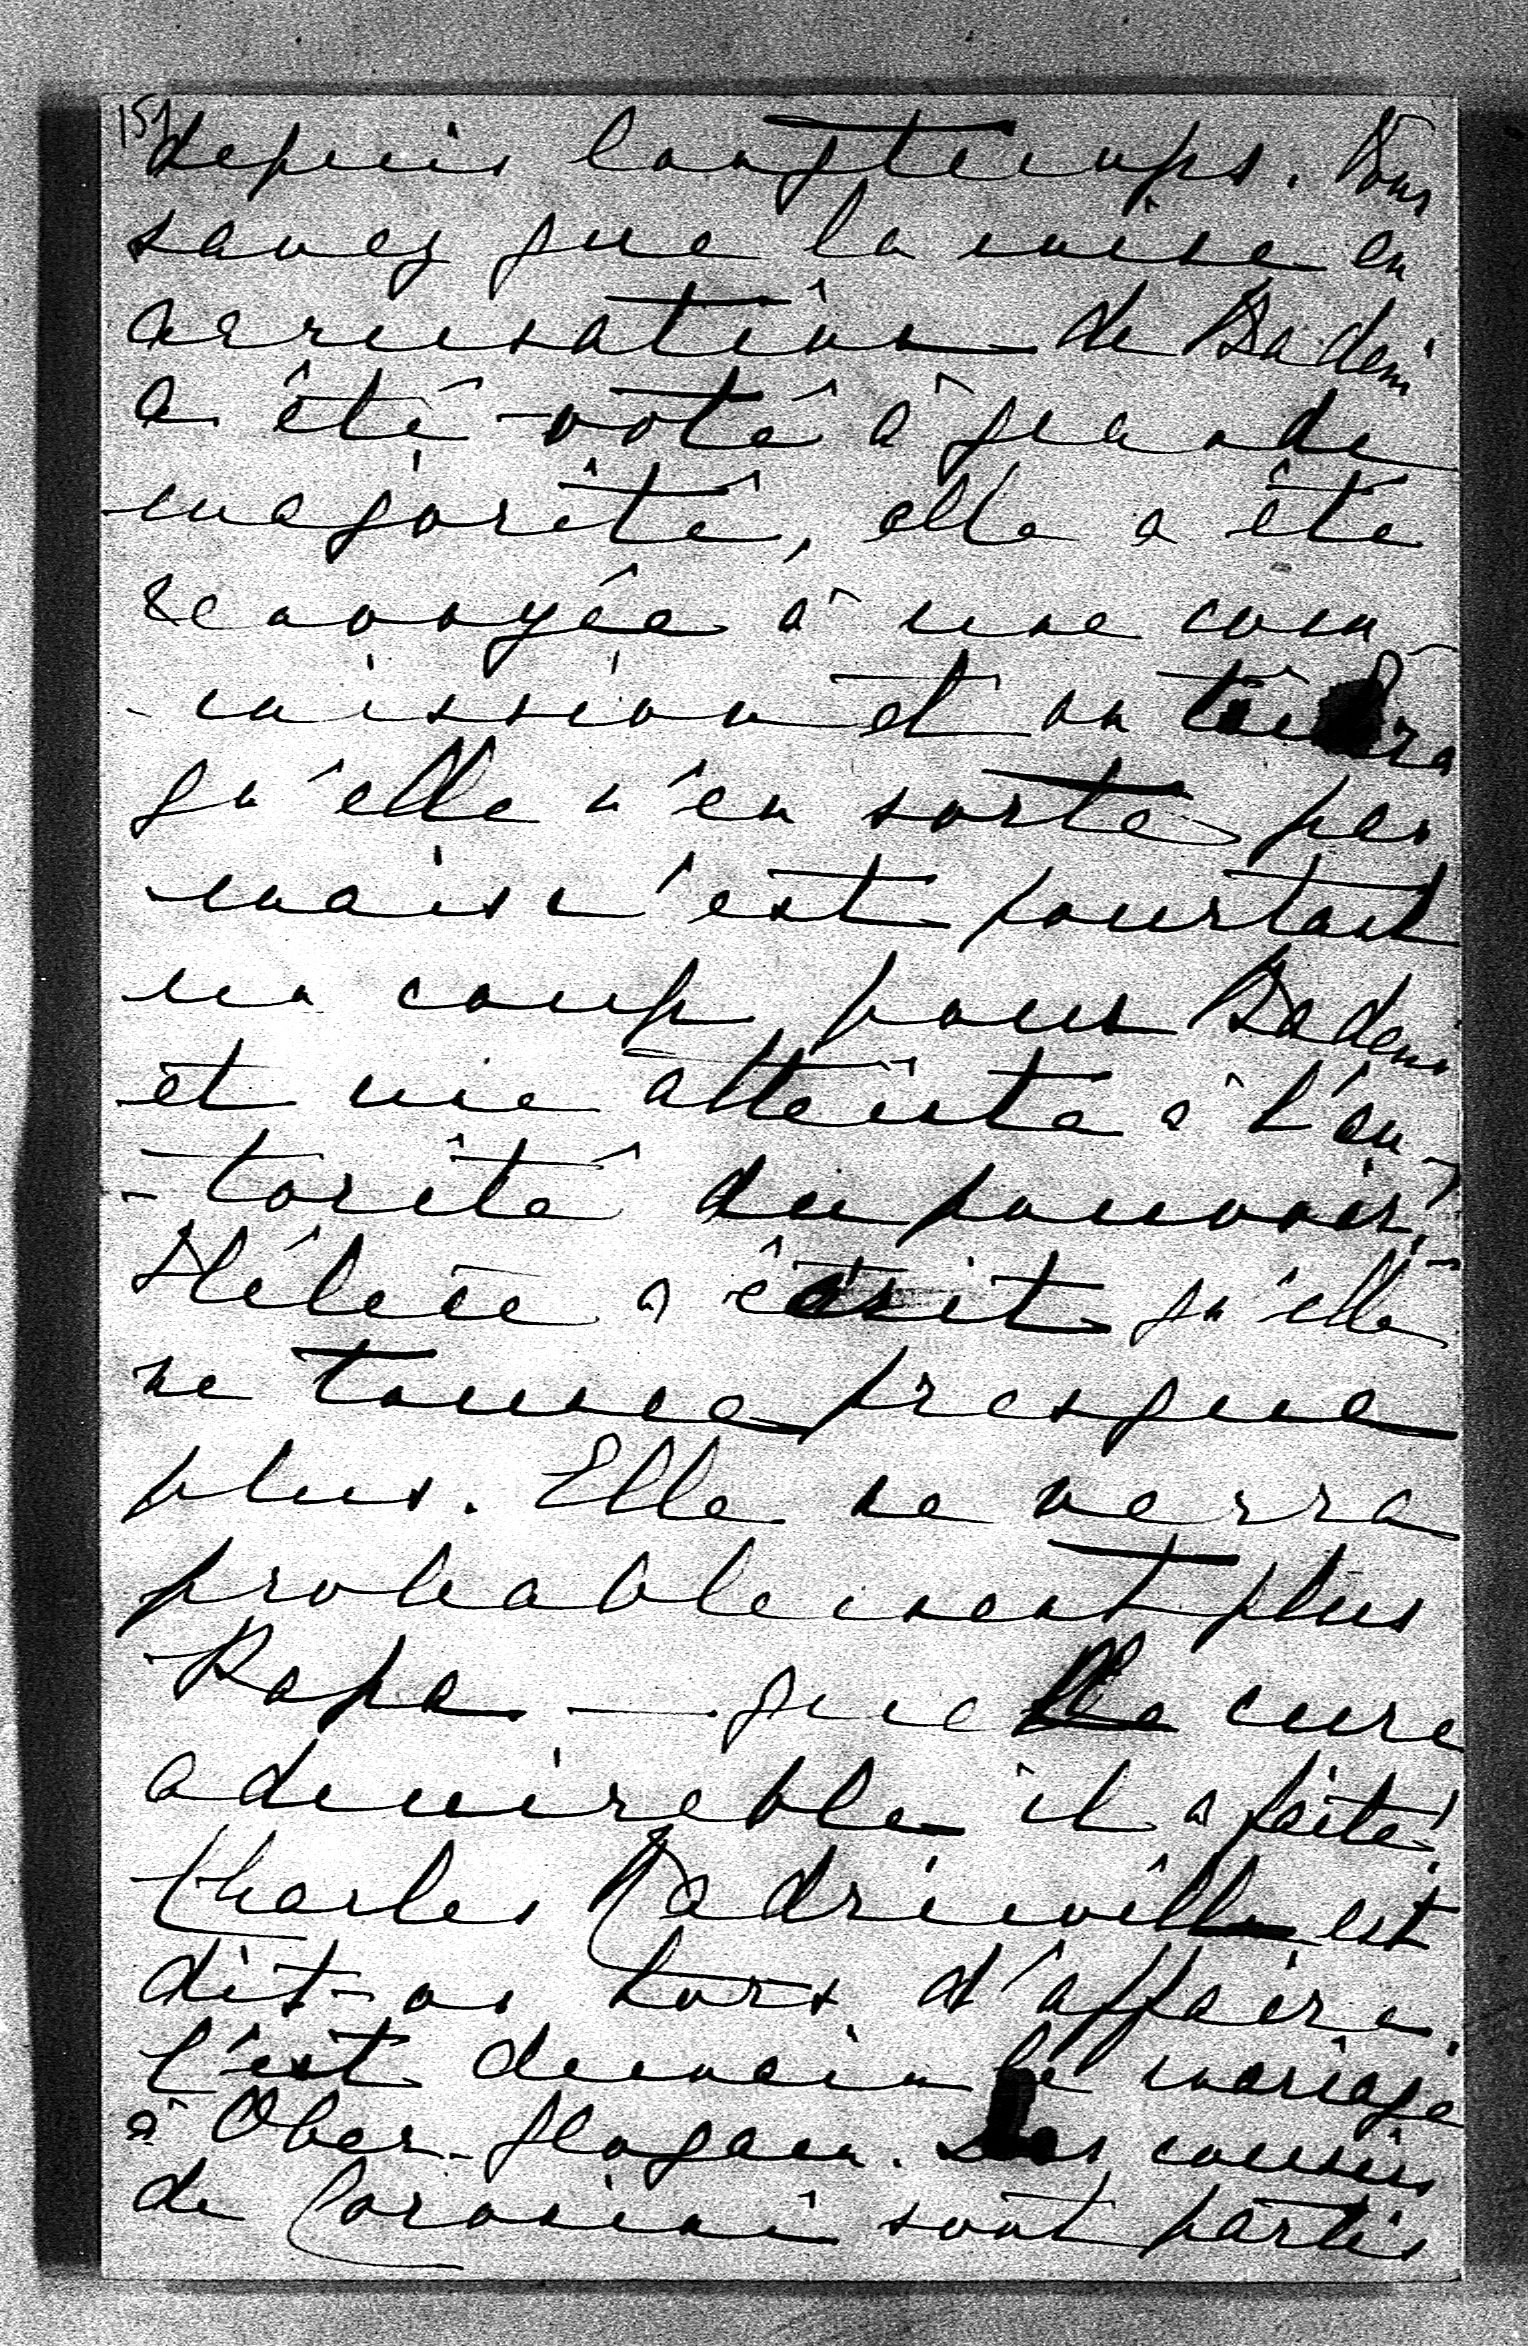 151
depuis longtemps. Vous
savez que la mise en
accusation de Badeni
a été voté à grande
majorité, elle a été
renvoyée à une com-
-mission et on
qu'elle n'en sorte pas
mais c'est pourtant
un coup pour Badeni
et une atteinte à l'au-
-torité du pouvoir.
Hélène a écrit qu'elle
ne tousse presque
plus. Elle ne verra
probablement plus
Papa — quelle cure
admirable il a faite!
Charles est
dit-on hors d'affaire.
C'est demain le mariage
à Ober-glogau. Les cousins
de Coronini sont partis